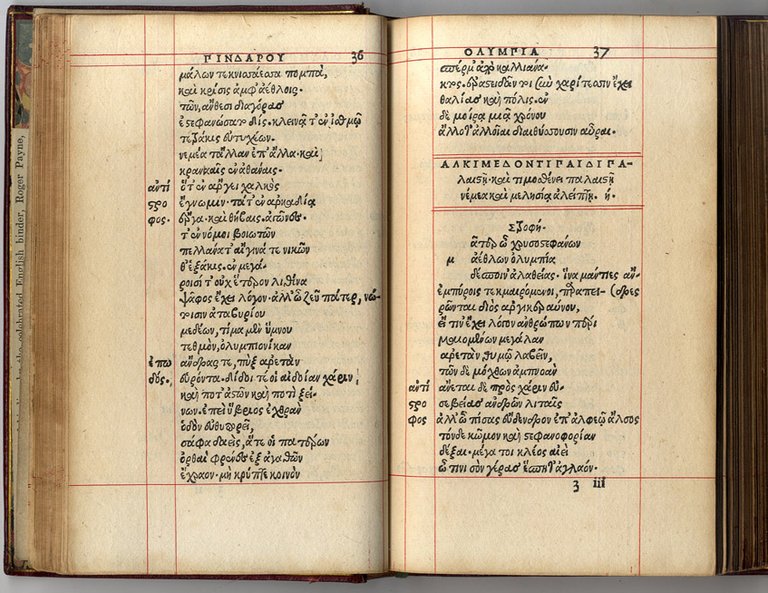 the celebrated English binder, Roger Payne,
ΠΙΝΔΑΡΟΥ 36
μάλων τε κνισσάεσσα πομπὰ,
καὶ κρίσις ἀμφ' ἀέθλοις.
τῶν, ἄνθεσι διαγόρας
ἐστεφανώσατο δὶς. κλεινᾷ τ' ἐν ἰσθμῷ
τετράκις εὐτυχέων.
νεμέᾳ τ' ἄλλαν ἐπ' ἄλλᾳ. καὶ
κρανααῖς ἐν ἀθάναις.
ἀντί ὅ τ' ἐν ἄργει χαλκὸς
στρο ἔγνω μιν. τά τ' ἐν ἀρκαδίᾳ
φος. ἔργα. καὶ θήβαις. ἀγῶνες
τ' ἔννομοι βοιωτῶν
πελλάνα τ' αἴγινά τε νικῶν
θ' ἑξάκις. ἐν μεγά-
ροισί τ' οὐχ ἕτερον λιθίνα
ψᾶφος ἔχει λόγον. ἀλλ' ὦ ζεῦ πάτερ, νώ-
τοισιν ἀταβυρίου
μεδέων, τίμα μὲν ὕμνου
τεθμὸν, ὀλυμπιονίκαν
ἐπω ἄνδρα τε, πὺξ ἀρετὰν
δός. εὑρόντα. δίδοι τέ οἱ αἰδοίαν χάριν
καὶ ποτ' ἀστῶν καὶ ποτὶ ξεί-
νων. ἐπεὶ ὕβριος ἐχθρὰν
ὁδὸν εὐθυπορεῖ,
σάφα δαεὶς, ἅ τε οἱ πατέρων
ὀρθαὶ φρένες ἐξ ἀγαθῶν
ἔχραον. μὴ κρύπτε κοινὸν
ΟΛΥΜΠΙΑ 37
σπέρμ' ἀπὸ καλλιάνα-
κτος. ἐρατειδᾶν τοι σὺν χαρίτεσσιν ἔχει
θαλίας καὶ πόλις. ἐν
δὲ μοίρᾳ μιᾷ χρόνου
ἄλλοτ' ἀλλοῖαι διαιθύσσουσιν αὖραι.
ΑΛΚΙΜΕΔΟΝΤΙ ΠΑΙΔΙ ΠΑ-
λαιστῇ. καὶ τιμοσθένει παλαιστῇ
νέμεα καὶ μελησίᾳ ἀλείπτῃ. ή.
Στροφή.
ᾶτερ ὦ χρυσοστεφάνων
μ ἀέθλων ὀλυμπία
δέσποιν' ἀλαθείας. ἵνα μάντιες ἄν-
ἐμπύροις τεκμαιρόμενοι, παραπει- (δρες
ρῶνται διὸς ἀργικεραύνου,
εἴ τιν' ἔχει λόγον ἀνθρώπων πέρι
μαιομένων μεγάλαν
ἀρετὰν θυμῷ λαβεῖν,
τῶν δὲ μόχθων ἀμπνοάν
ἀντί ἄνεται δὲ πρὸς χάριν εὐ-
στρο σεβείας ἀνδρῶν λιταῖς
φος ἀλλ' ὦ πίσας εὔδενδρον ἐπ' ἀλφεῷ ἄλσος
τόνδε κῶμον καὶ στεφανοφορίαν
δέξαι. μέγα τοι κλέος αἰεὶ
ᾧ τινι σὸν γέρας ἕσπητ' ἀγλαόν.
3 iii